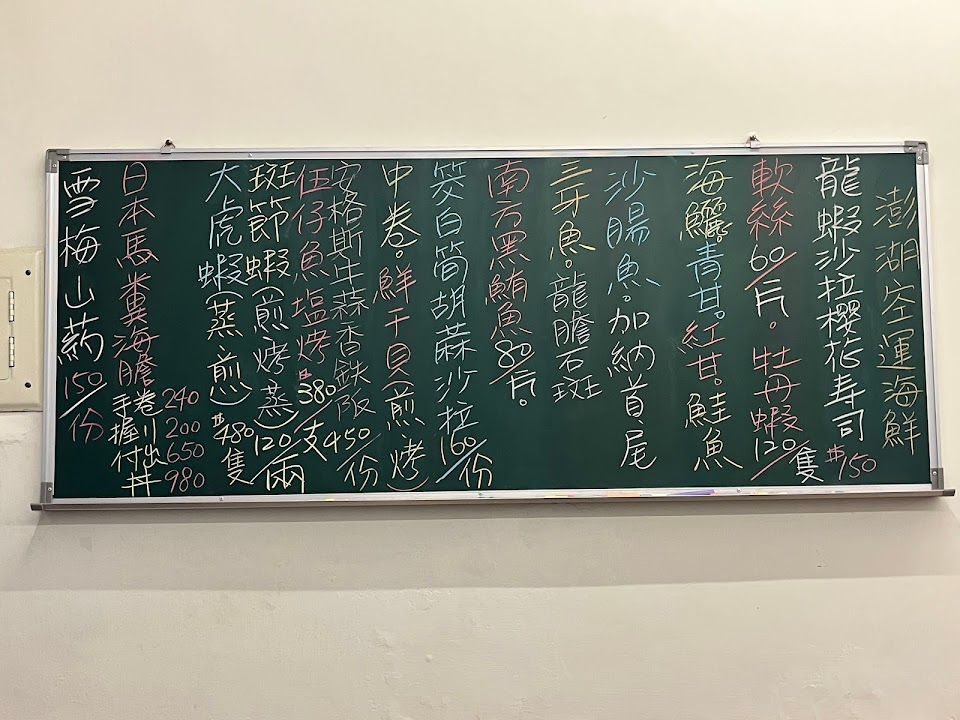 澎湖空運海鮮
龍蝦沙拉櫻花壽司$150
軟絲60/片。牡丹蝦120/隻
海鱺。青甘。紅甘。鮭魚
沙腸魚。加納首、尾
三牙魚。龍膽石斑
南方黑鮪魚80/片。
筊白筍胡蔴沙拉160/份
中卷。鮮干貝(煎、烤)
安格斯牛蒜香鉄板450/份
伍仔魚塩烤$380/支
斑節蝦(煎烤蒸)120/兩
大虎蝦(蒸煎)$480隻
日本馬糞海膽
手卷240
握り200
付出650
丼980
雪梅山葯150/份